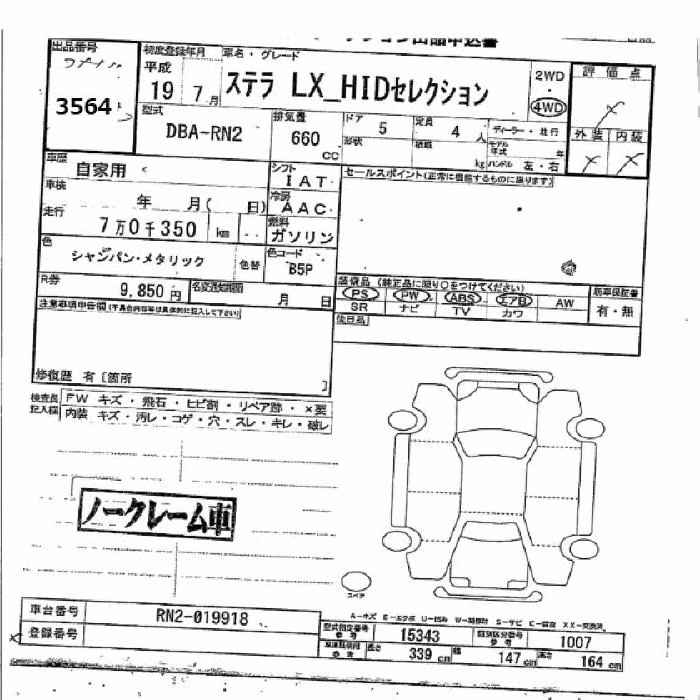 出品番号
3564
初度登録年月
平成
19 7月
車名・グレード
ステラ LX_HIDセレクション
2WD
4WD
評価点
外装 内装
型式
DBA-RN2
排気量
660
CC
ドア 5
形状
定員 4 人
積載 kg
ディーラー・並行
モデル年式 年
ハンドル 左・右
車歴
自家用
シフト
IAT
セールスポイント(正常に機能するものに限ります)
車検
年 月( 日)
冷房
AAC
走行
7万0千350 km
燃料
ガソリン
色
シャンパン・メタリック
色替
色コード
B5P
R券
9,850円
名変通知期限
月 日
装備品 (純正品に限り○をつけてください)
PS PW ABS エアB AW
SR ナビ TV カワ
新車保証書
有・無
後日品
注意事項申告欄(不具合内容等は具体的に記入して下さい)
修復歴 有 [箇所 ]
検査員記入欄
FW キズ・飛石・ヒビ割・リペア跡・×要
内装 キズ・汚レ・コゲ・穴・スレ・キレ・破レ
ノークレーム車
スペア
車台番号
RN2-019918
登録番号
型式指定番号
参考
15343
類別区分番号
参考
1007
長さ 339 cm
幅 147 cm
高さ 164 cm